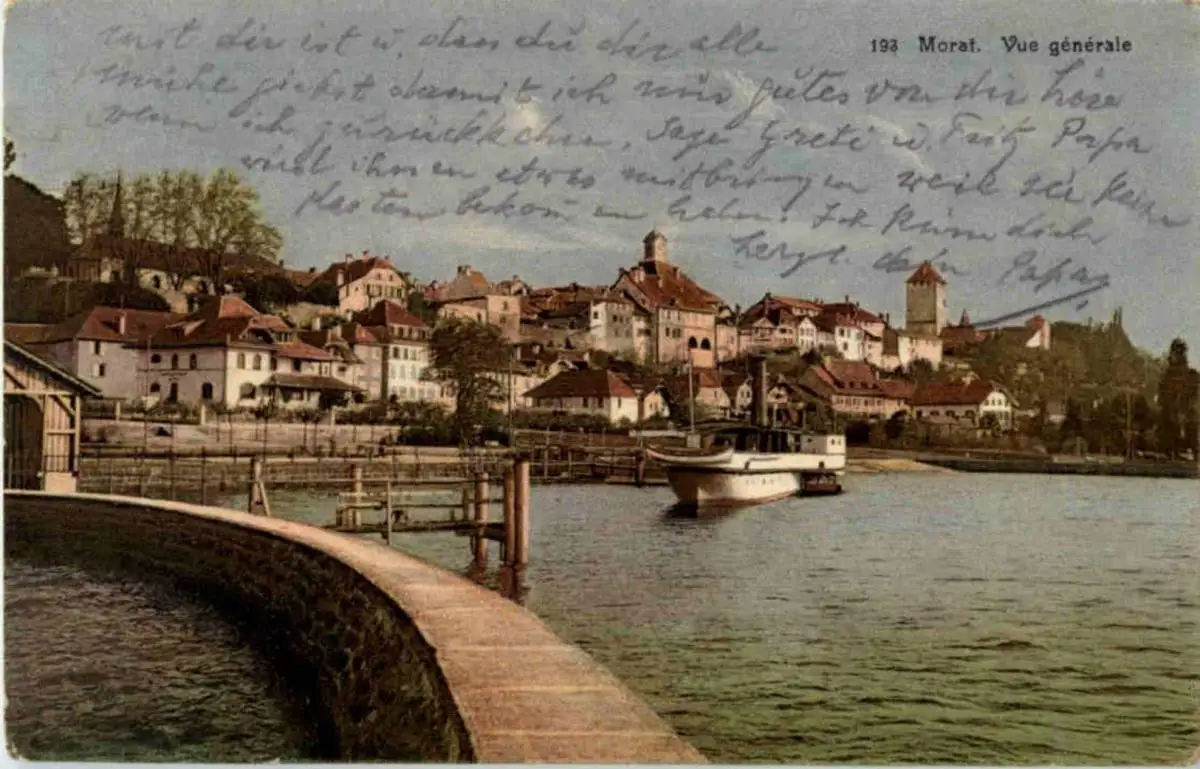 193 Morat. Vue générale
mit dir ist u. dass du dir alle
mühe giebst damit ich nur gutes von dir höre
wenn ich zurückkehre. Sage Greti u. Fritz Papa
will ihnen etwas mitbringen weil sie kein
Karten bekommen haben. Ich küsse dich
herzl. dein Papa